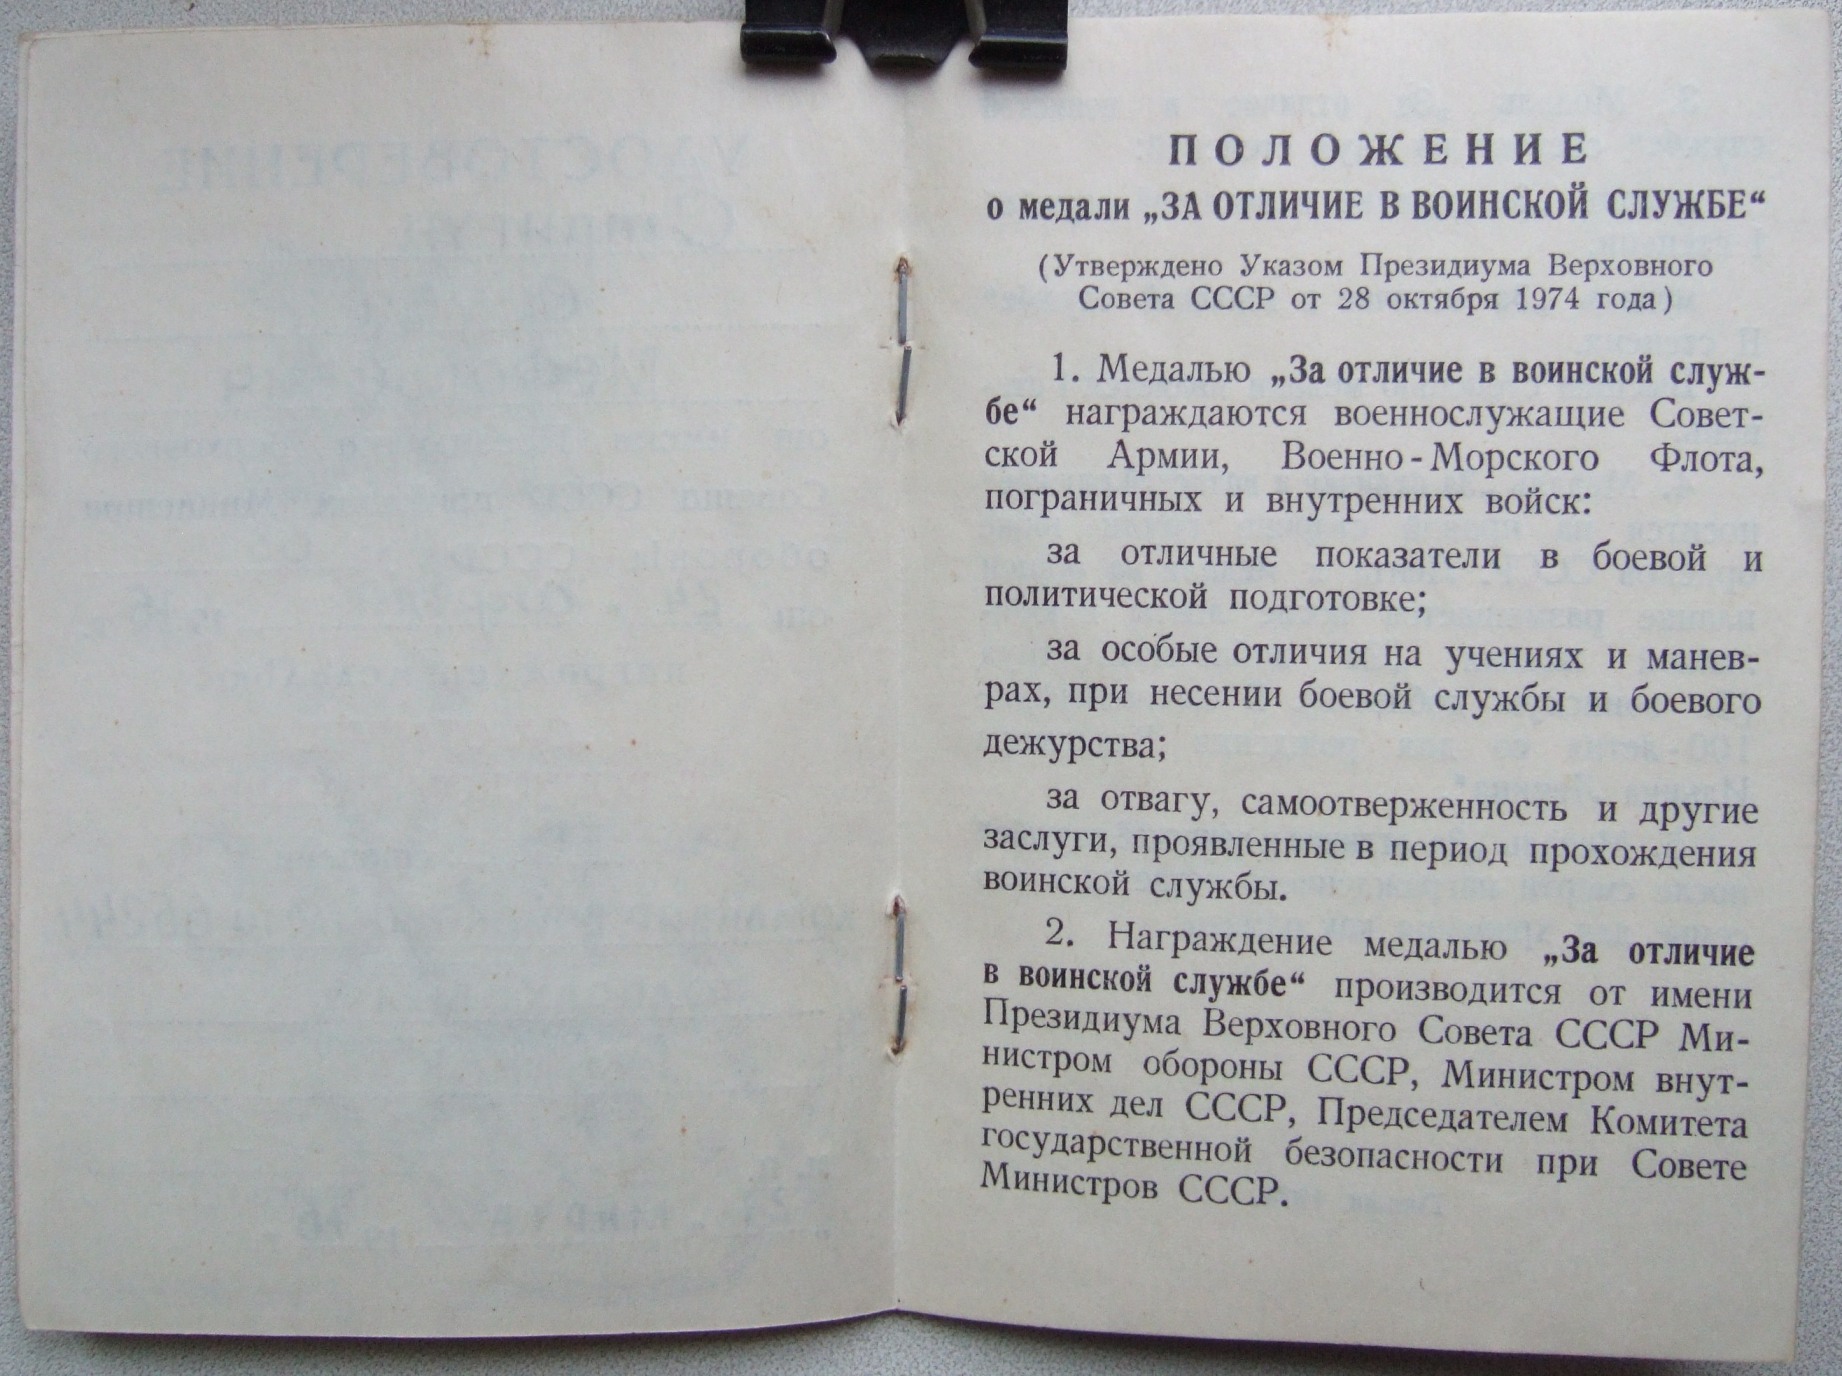 ПОЛОЖЕНИЕ
о медали „ЗА ОТЛИЧИЕ В ВОИНСКОЙ СЛУЖБЕ“
(Утверждено Указом Президиума Верховного
Совета СССР от 28 октября 1974 года)
1. Медалью „За отличие в воинской служ-
бе“ награждаются военнослужащие Совет-
ской Армии, Военно-Морского Флота,
пограничных и внутренних войск:
за отличные показатели в боевой и
политической подготовке;
за особые отличия на учениях и манев-
рах, при несении боевой службы и боевого
дежурства;
за отвагу, самоотверженность и другие
заслуги, проявленные в период прохождения
воинской службы.
2. Награждение медалью „За отличие
в воинской службе“ производится от имени
Президиума Верховного Совета СССР Ми-
нистром обороны СССР, Министром внут-
ренних дел СССР, Председателем Комитета
государственной безопасности при Совете
Министров СССР.